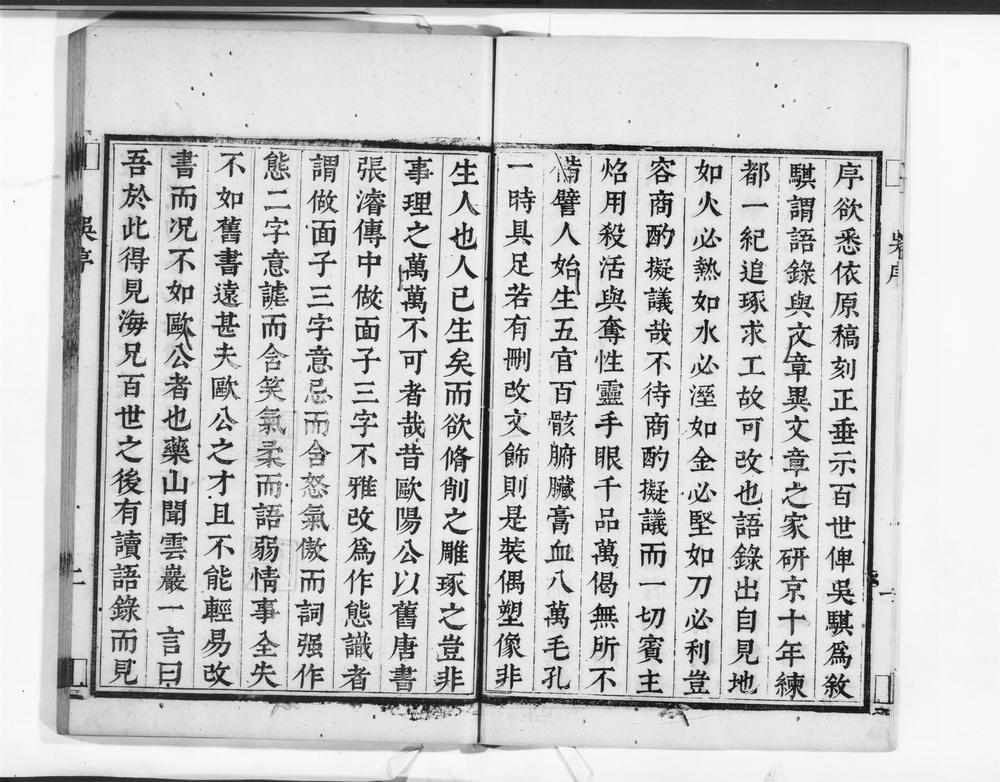 序欲悉依原稿刻正垂示百世俾吳騏爲敘
騏謂語錄與文章異文章之家研京十年練
都一紀追琢求工故可改也語錄出自見地
如火必熱如水必溼如金必堅如刀必利豈
容商酌擬議哉不待商酌擬議而一切賓主
焰用殺活與奪性靈手眼千品萬偈無所不
備譬人始生五官百骸腑臟膏血八萬毛孔
一時具足若有刪改文飾則是裝偶塑像非
生人也人已生矣而欲脩削之雕琢之豈非
事理之萬萬不可者哉昔歐陽公以舊唐書
張濬傳中做面子三字不雅改爲作態識者
謂做面子三字意忌而含怒氣傲而詞强作
態二字意謔而含笑氣柔而語弱情事全失
不如舊書遠甚夫歐公之才且不能輕易改
書而况不如歐公者也藥山聞雲巖一言曰
吾於此得見海兄百世之後有讀語錄而見
吳序
一
吳序
二